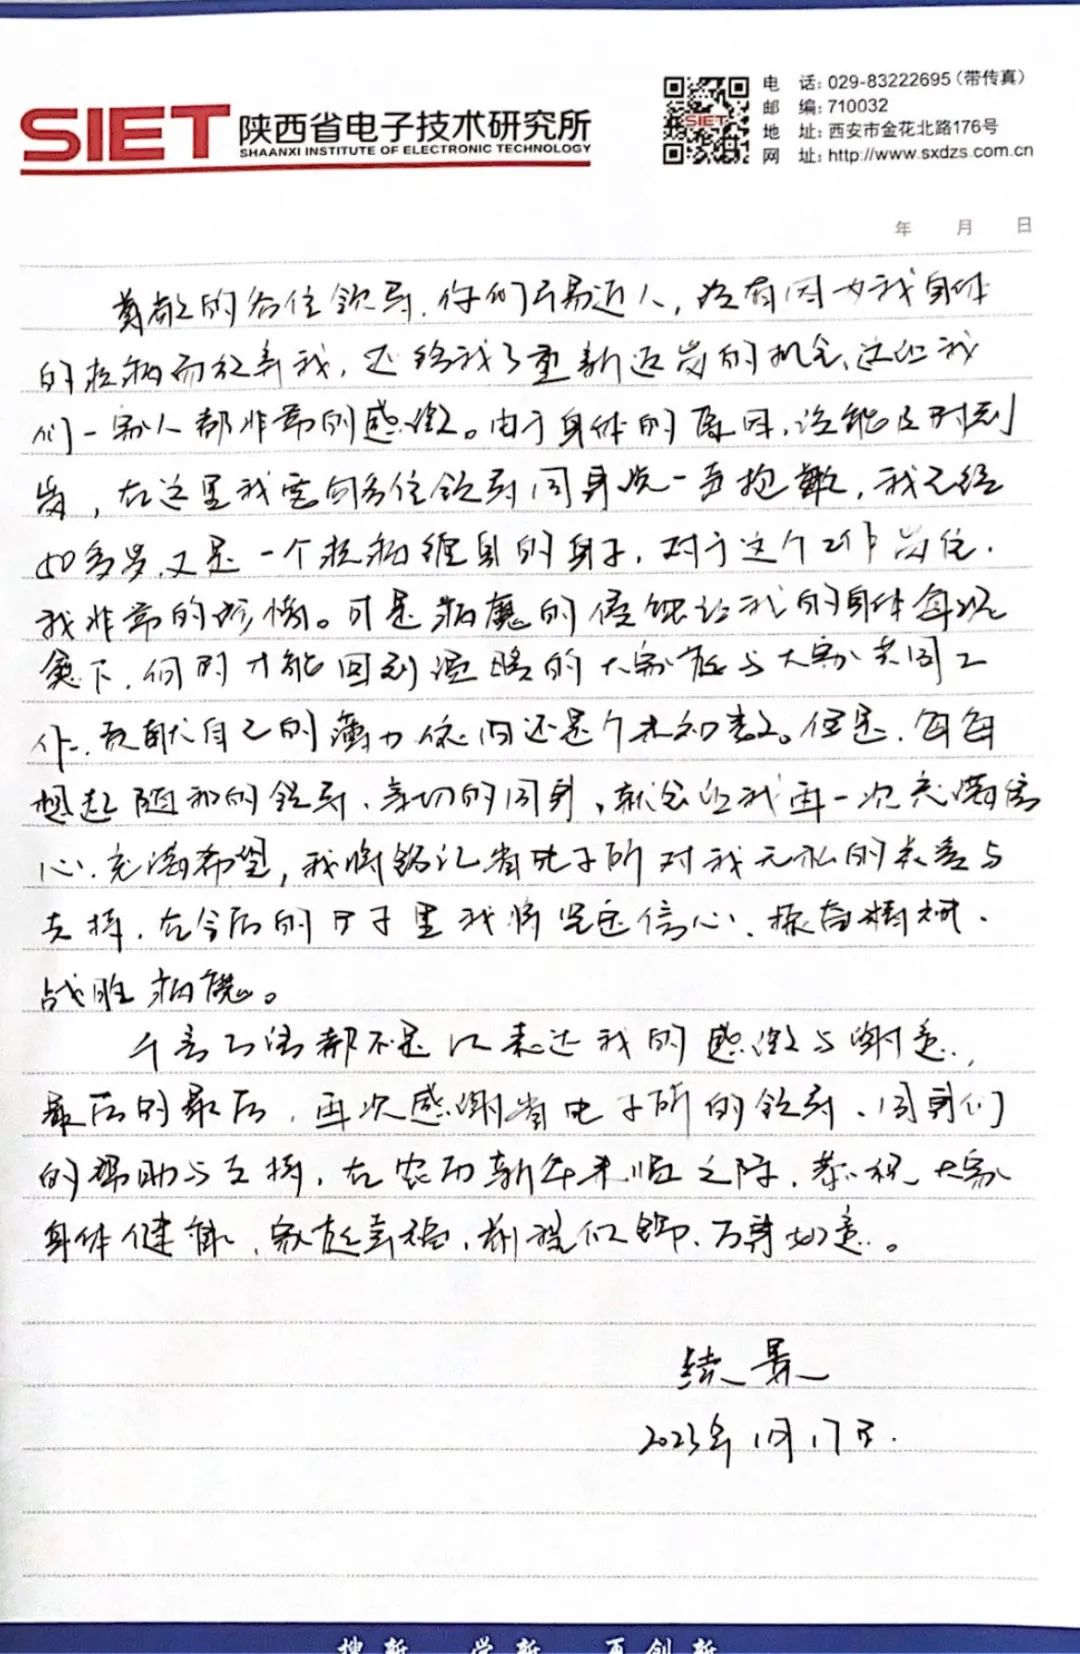 SIET 陕西省电子技术研究所
SHAANXI INSTITUTE OF ELECTRONIC TECHNOLOGY
SIET
电 话: 029-83222695 (带传真)
邮 编: 710032
地 址: 西安市金花北路176号
网 址: http://www.sxdzs.com.cn
年 月 日
尊敬的各位领导,你们平易近人,没有因为我身体
的疾病而放弃我,还给我了重新返岗的机会,这让我
们一家人都非常的感激。由于身体的原因,没能及时到
岗,在这里我要向各位领导同事说一声抱歉,我已经
50多岁,又是一个疾病缠身的身子,对于这个工作岗位,
我非常的珍惜。可是病魔的侵蚀让我的身体每况
愈下,何时才能回到温暖的大家庭与大家共同工
作、贡献自己的薄力依旧还是个未知数。但是,每每
想起随和的领导、亲切的同事,就会让我再一次充满信
心、充满希望,我将铭记省电子所对我无私的关爱与
支持,在今后的日子里我将坚定信心、振奋精神、
战胜病魔。
千言万语都不足以表达我的感激与谢意,
最后的最后,再次感谢省电子所的领导、同事们
的帮助与支持,在农历新年来临之际,恭祝大家
身体健康、家庭幸福、前程似锦、万事如意。
2023年1月17日.